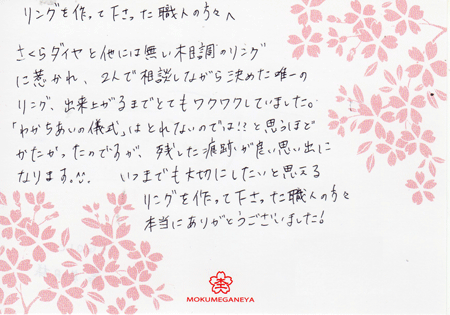 リングを作って下さった職人の方々へ
さくらダイヤと他には無い木目調のリング
に惹かれ、2人で相談しながら決めた唯一の
リング、出来上がるまでとてもワクワクしていました。
「わかちあいの儀式」はとれないのでは!!と思うほど
かたかったのですが、残した痕跡が良い思い出に
なります。^^. いつまでも大切にしたいと思える
リングを作って下さった職人の方々
本当にありがとうございました!
MOKUMEGANEYA